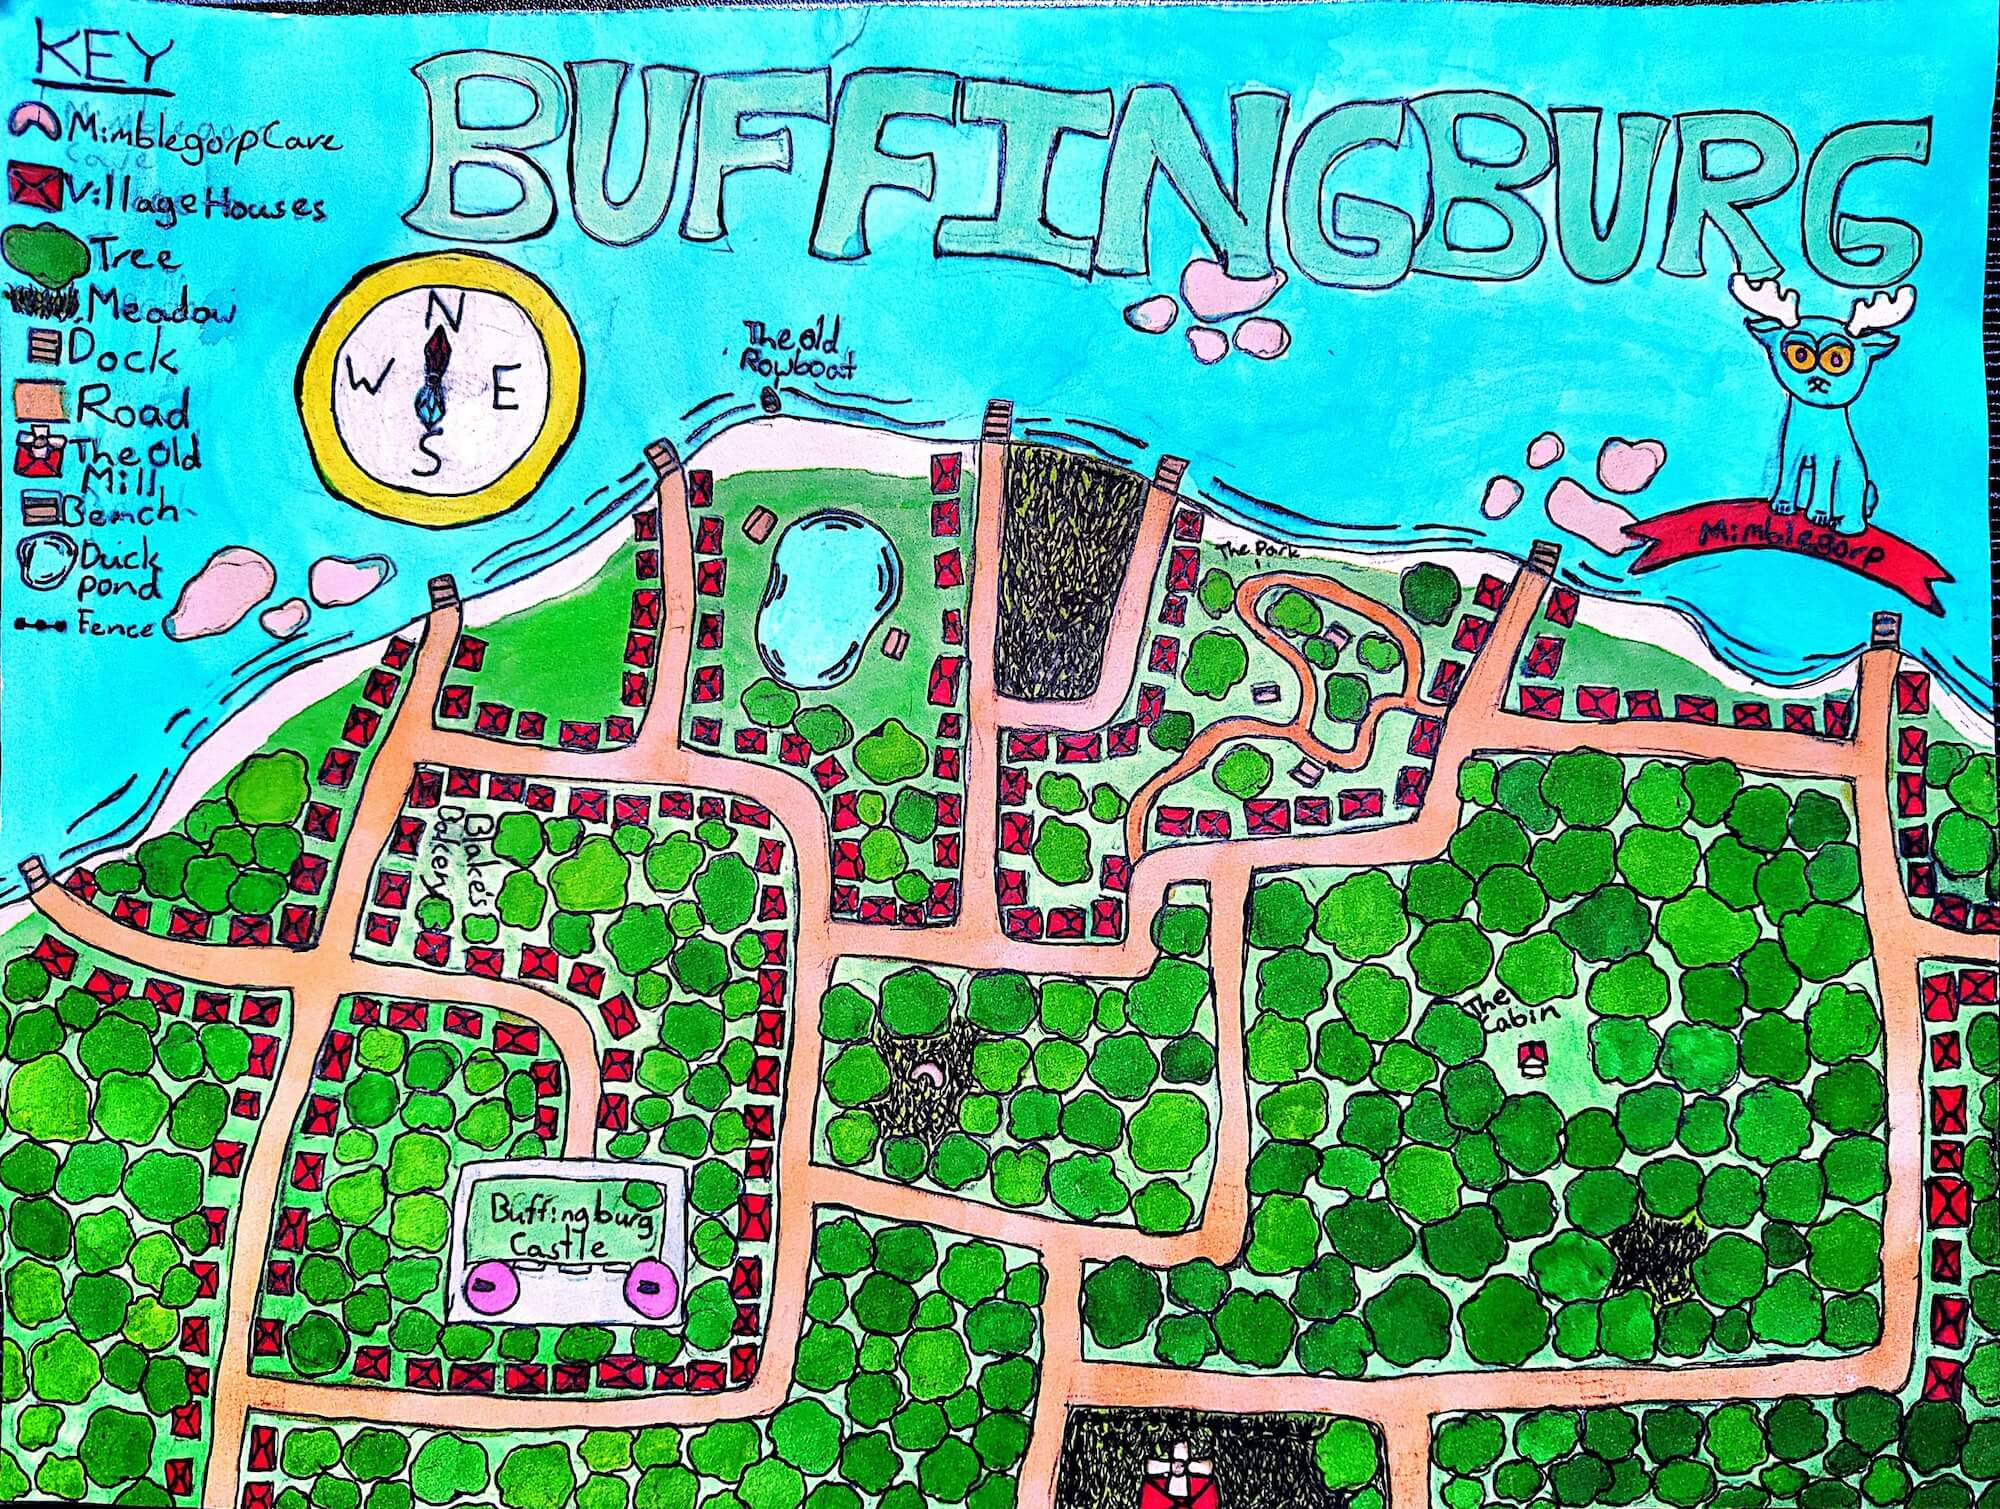 KEY
BUFFINGBURG
Mimblegorp Cave
Village Houses
Tree
Meadow
Dock
Road
The Old
Mill
Bench
Duck
pond
Fence
N
W E
S
The old
Rowboat
Mimblegorp
The Park
Blake's
Bakery
The
Cabin
Buffingburg
Castle